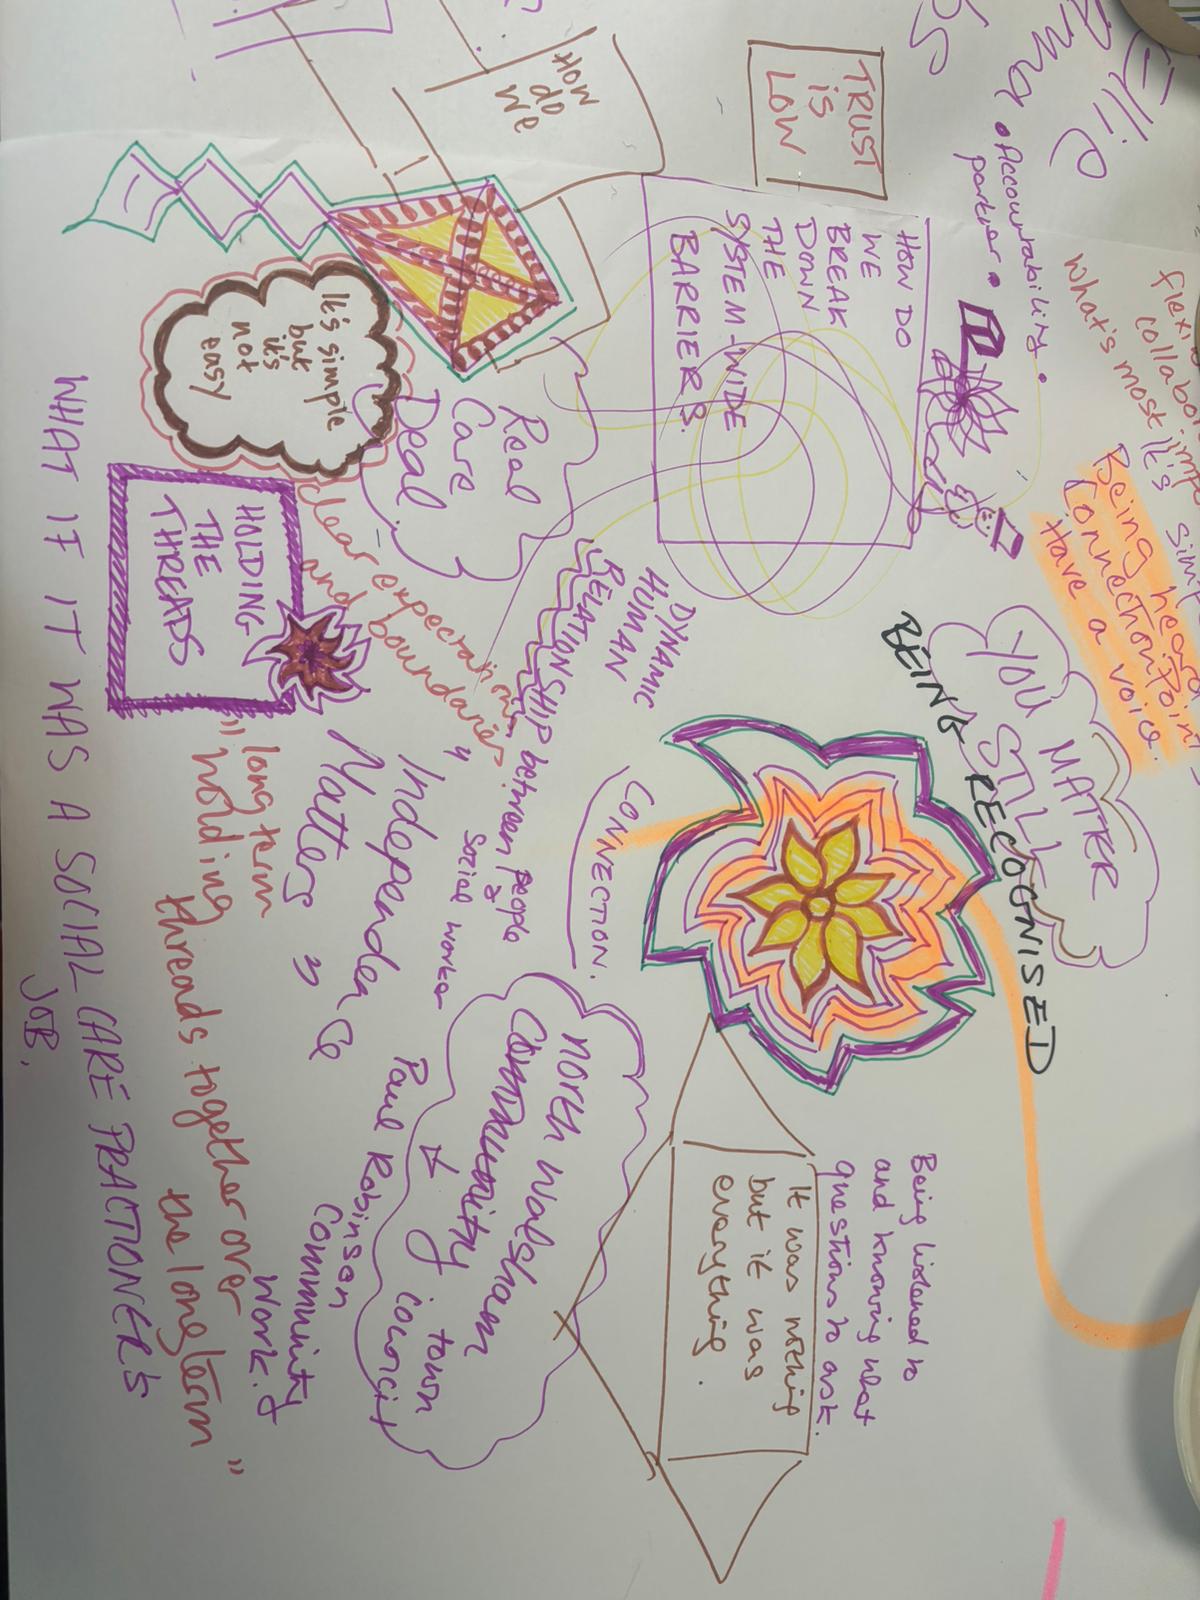 Ellie
• Accountability •
partner •
what's most
collabor
it's
Being heard
Connection point
Have a voice
TRUST
IS
LOW
HOW
do
we
HOW DO
WE
BREAK
DOWN
THE
SYSTEM-WIDE
BARRIERS.
YOU
STILL
MATTER
BEING RECOGNISED
It's simple
but
it's
not
easy
Real
Care
Deal.
DYNAMIC
HUMAN
RELATIONSHIP between people
&
social worker
CONNECTION.
clear expectations
and boundaries
HOLDING
THE
THREADS
"Independence
Matters"
Being listened to
and knowing what
questions to ask.
It was nothing
but it was
everything.
North Walsham
Community & town council
Paul Robinson
Community
Work.
"holding threads together over the long term"
long term
WHAT IF IT WAS A SOCIAL CARE PRACTIONERS
JOB.